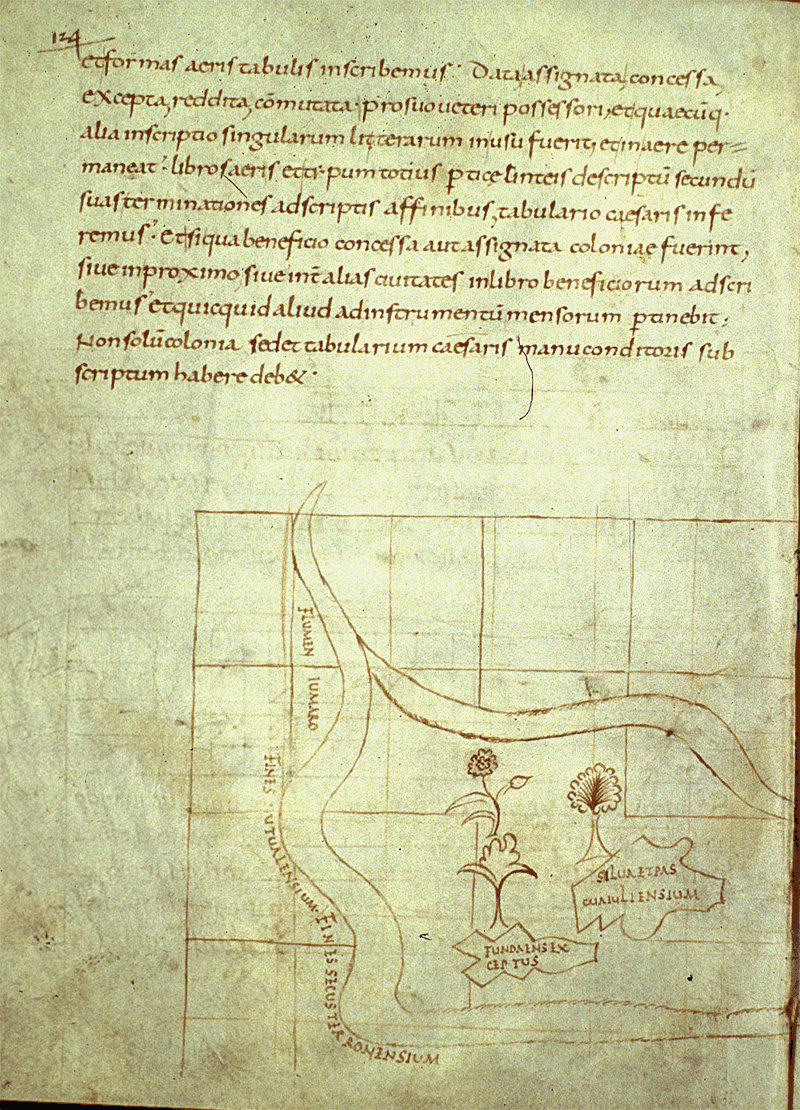 124
et formas aeris tabulis inscribemus. Data assignata, concessa,
excepta, reddita, cōmutata. pro suo ueteri possessori, et quaecūq.
alia inscriptio singularum litterarum in usu fuerit, et in aere per=
maneat. libros aeris et totius ptice linteis descriptū secundū
suas terminationes adscriptis affinibus, tabulario caesaris infe
remus. Et si qua beneficio concessa aut assignata coloniae fuerint,
siue in proximo siue int alias ciuitates in libro beneficiorum adscri
bemus et quicquid aliud ad instrumentū mensorum ptinebit.
Non solū colonia sed et tabularium caesaris manu conditoris sub
scriptum habere deb&.
FLUMEN
IUMARO
FINES UTUALENSIUM. FINES SECUS
ROMENSIUM
SILUA ET PAS
CUA IULIENSIUM
FUNDAENS EX
CEPTUS